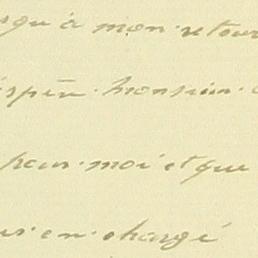 squ'à mon retour
espère monsieur
pour moi et que
us en chargé